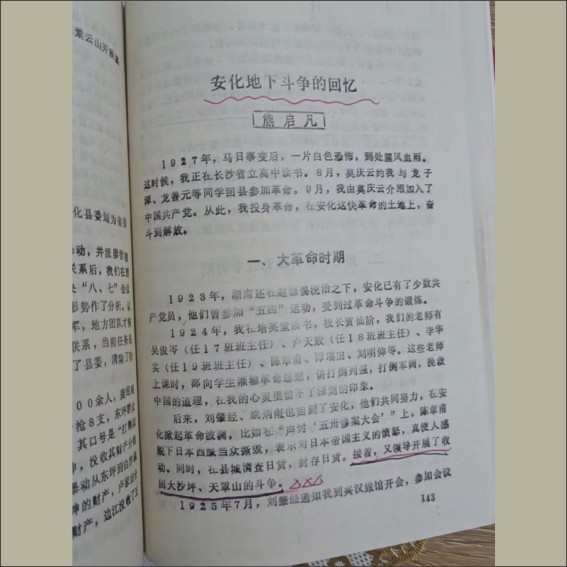 紫云山另
安化地下斗争的回忆
熊启凡
1927年,马日事变后,一片白色恐怖,到处腥风血雨。
这时候,我正在长沙省立高中读书。8月,莫庆云约我与龙子
潭、龙善元等同学回县参加革命。9月,我由莫庆云介绍加入了
中国共产党。从此,我投身革命,在安化这块革命的土地上,奋
斗到解放。
一、大革命时期
1923年,湖南还在赵恒惕统治之下,安化已有了少数共
产党员,他们曾参加“五四”运动,受到过革命斗争的锻炼。
1924年,我在培英堂读书,校长贺仙阶,我们的老师有
吴俊岑(任17班班主任)、卢天放(任18班班主任)、李华
实(任19班班主任)、陈章甫、谭瑞田、刘明仰等。这些老师
上课时,都向学生灌输革命思想,讲打倒列强,打倒军阀,挽救
中国的道理,在我的心灵里留下了深刻的印象。
后来,刘肇经、姚炳南也回到了安化,他们共同努力,在安
化掀起革命波澜。比如在“声讨‘五卅惨案大会’”上,陈章甫
脱下日本西服当众撕毁,表示对日本帝国主义的愤怒,真使人感
动。同时,在县城清查日货,封存日货。接着,又领导开展了收
回大沙坪、天罩山的斗争。
1925年7月,刘肇经通知我到兴汉旅馆开会,参加会议
143
化县委划为省委
动,并派廖觉雄
联系后,我们在
央“八、七”会议
形势作了分析。
军,地方团队才
联系,当前任
了县委,清除了
00余人,
枪8支,东坪群众
其口号是“打倒
绅,投收其财产分
暴动从东坪到白
绅的财产,卢家
财产,边江投收了